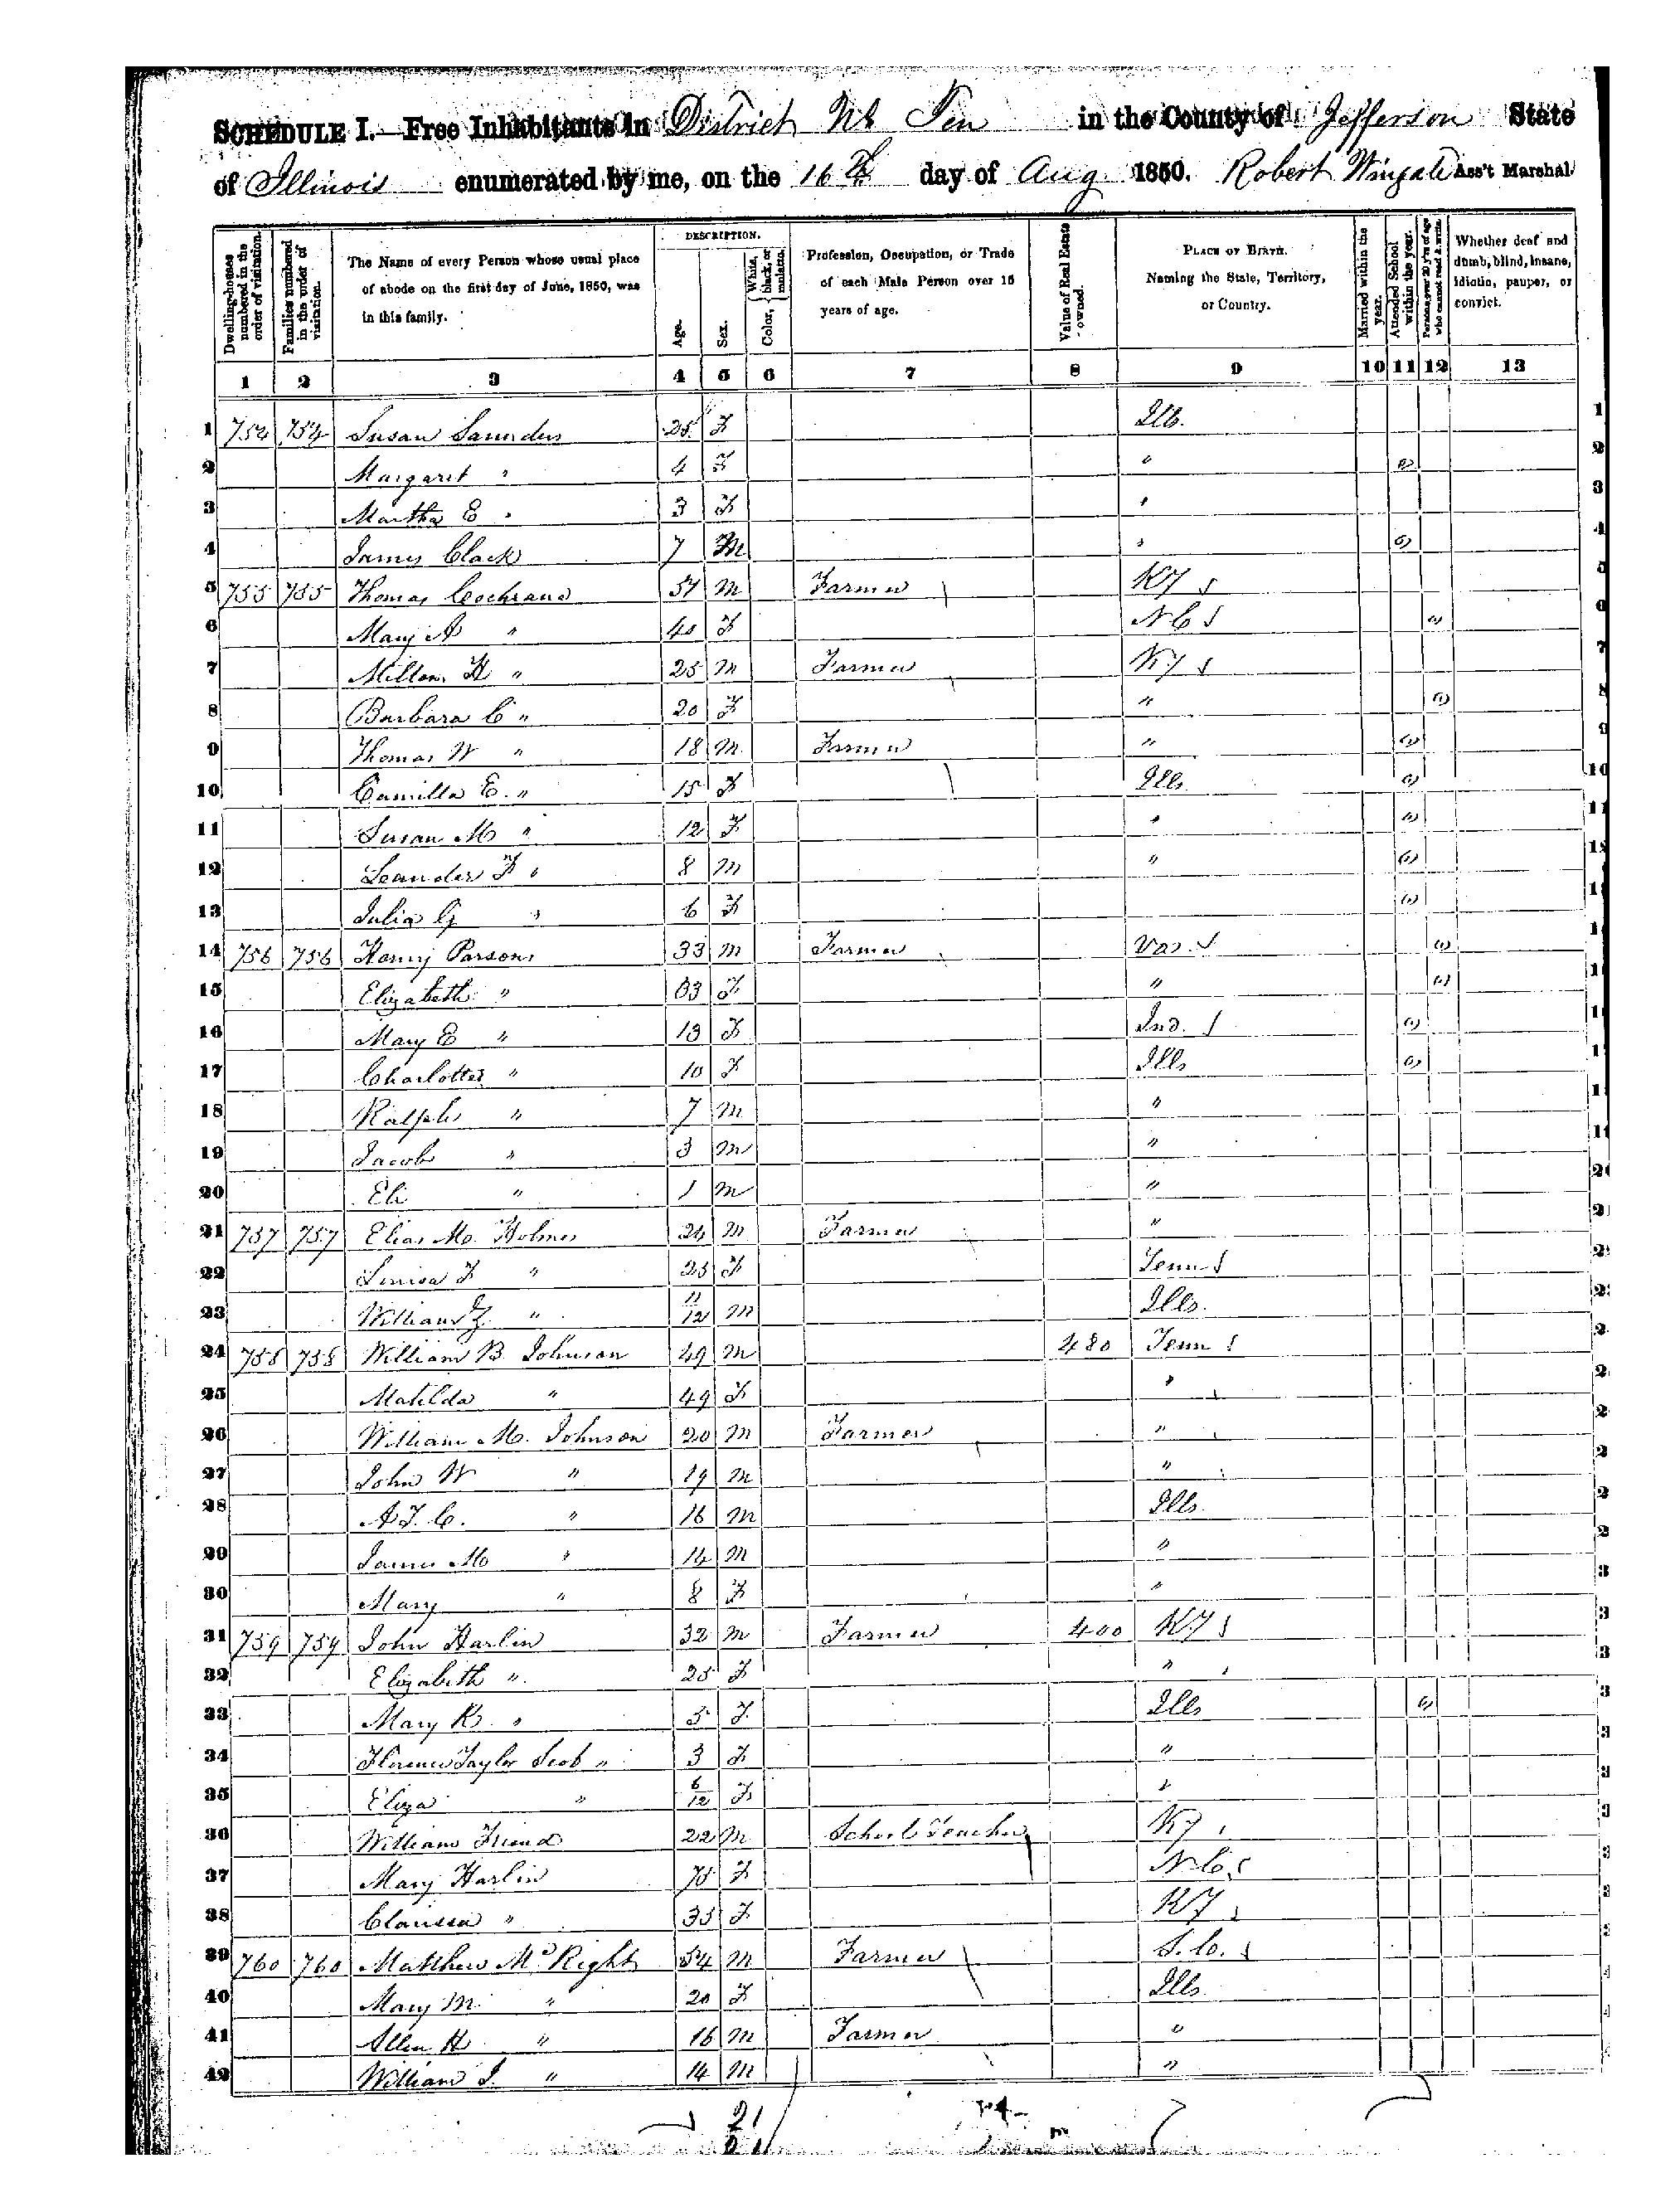 SCHEDULE I.—Free Inhabitants in District No Ten in the County of Jefferson State
of Illinois enumerated by me, on the 16th day of Aug 1850. Robert Wingate Ass't Marshal
Dwelling-houses numbered in the order of visitation.
Families numbered in the order of visitation.
The Name of every Person whose usual place of abode on the first day of June, 1850, was in this family.
DESCRIPTION.
Age.
Sex.
Color, { White, black, or mulatto.
Profession, Occupation, or Trade of each Male Person over 15 years of age.
Value of Real Estate owned.
PLACE OF BIRTH. Naming the State, Territory, or Country.
Married within the year.
Attended School within the year.
Persons over 20 y'rs of age who cannot read & write.
Whether deaf and dumb, blind, insane, idiotic, pauper, or convict.
1 2 3 4 5 6 7 8 9 10 11 12 13
1 754 754 Susan Saunders 25 F Ills. 1
2 Margaret " 4 F " 2
3 Martha E " 3 F " 3
4 James Clack 7 M " 4
5 755 755 Thomas Cochrane M Farmer KY 5
6 Mary A " 40 F N C 6
7 Milton H " 25 M Farmer KY 7
8 Barbara C " 20 F " 8
9 Thomas W " 18 M Farmer " 9
10 Camilla E. " 15 F Ills 10
11 Susan M " 12 F " 11
12 Leander F " 8 M "
13 Julia G " 6 F
14 756 756 Henry Parsons 33 M Farmer Va.
15 Elizabeth " 33 F "
16 Mary E " 13 F Ind.
17 Charlotte " 10 F Ills
18 Ralph " 7 M "
19 Jacob " 3 M "
20 Eli " 1 M "
21 757 757 Elias M. Holmes 24 M Farmer "
22 Louisa F " 25 F Tenn
23 William Z. " 11/12 M Ills.
24 758 758 William B. Johnson 49 M 480 Tenn
25 Matilda " 49 F "
26 William M. Johnson 20 M Farmer "
27 John W " 19 M "
28 A. J. C. " 16 M Ills.
29 James M " 14 M "
30 Mary " 8 F "
31 759 759 John Harlin 32 M Farmer 400 KY
32 Elizabeth " 25 F "
33 Mary R. " 5 F Ills
34 Florence Taylor " 3 F "
35 Eliza " 6/12 F "
36 William Friend 22 M School Teacher KY
37 Mary Harlin 75 F N C.
38 Clarissa " 35 F KY
39 760 760 Matthew McRight 54 M Farmer S. C.
40 Mary M. " 20 F Ills.
41 Allen H " 16 M Farmer "
42 William J. " 14 M "
21